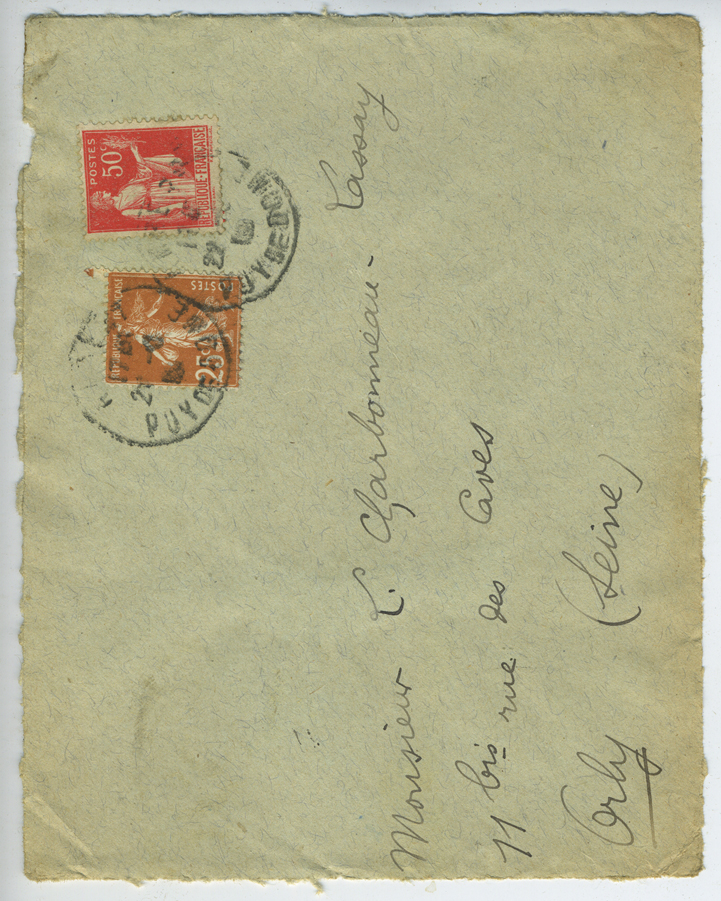 POSTES
50c
REPUBLIQUE-FRANÇAISE
REPUBLIQUE FRANÇAISE
POSTES
25c
PUY DE DOME
PUY DE DOME
Monsieur L. Charbonneau-Lassay
11 bis rue des Caves
Orly (Seine)